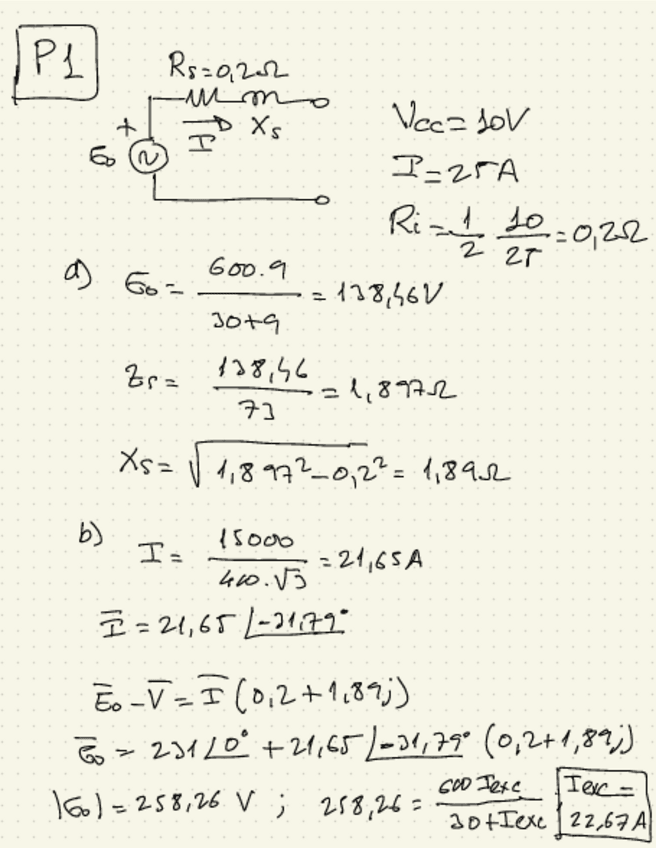 P1
Rs=0,2Ω
+
E₀
I
Xs
Vcc=10V
I=25A
Ri=1/2 10/25=0,2Ω
a) E₀=600.9/30+9=138,46V
Zs=138,46/73=1,897Ω
Xs=√1,897²-0,2²=1,89Ω
b) I=15000/400.√3=21,65A
I̅=21,65 ∠-31,79°
E̅₀-V̅=I̅(0,2+1,89j)
E̅₀=231∠0°+21,65∠-31,79° (0,2+1,89j)
|E₀|=258,26 V; 258,26=600 Iexc/30+Iexc
Iexc=
22,67A